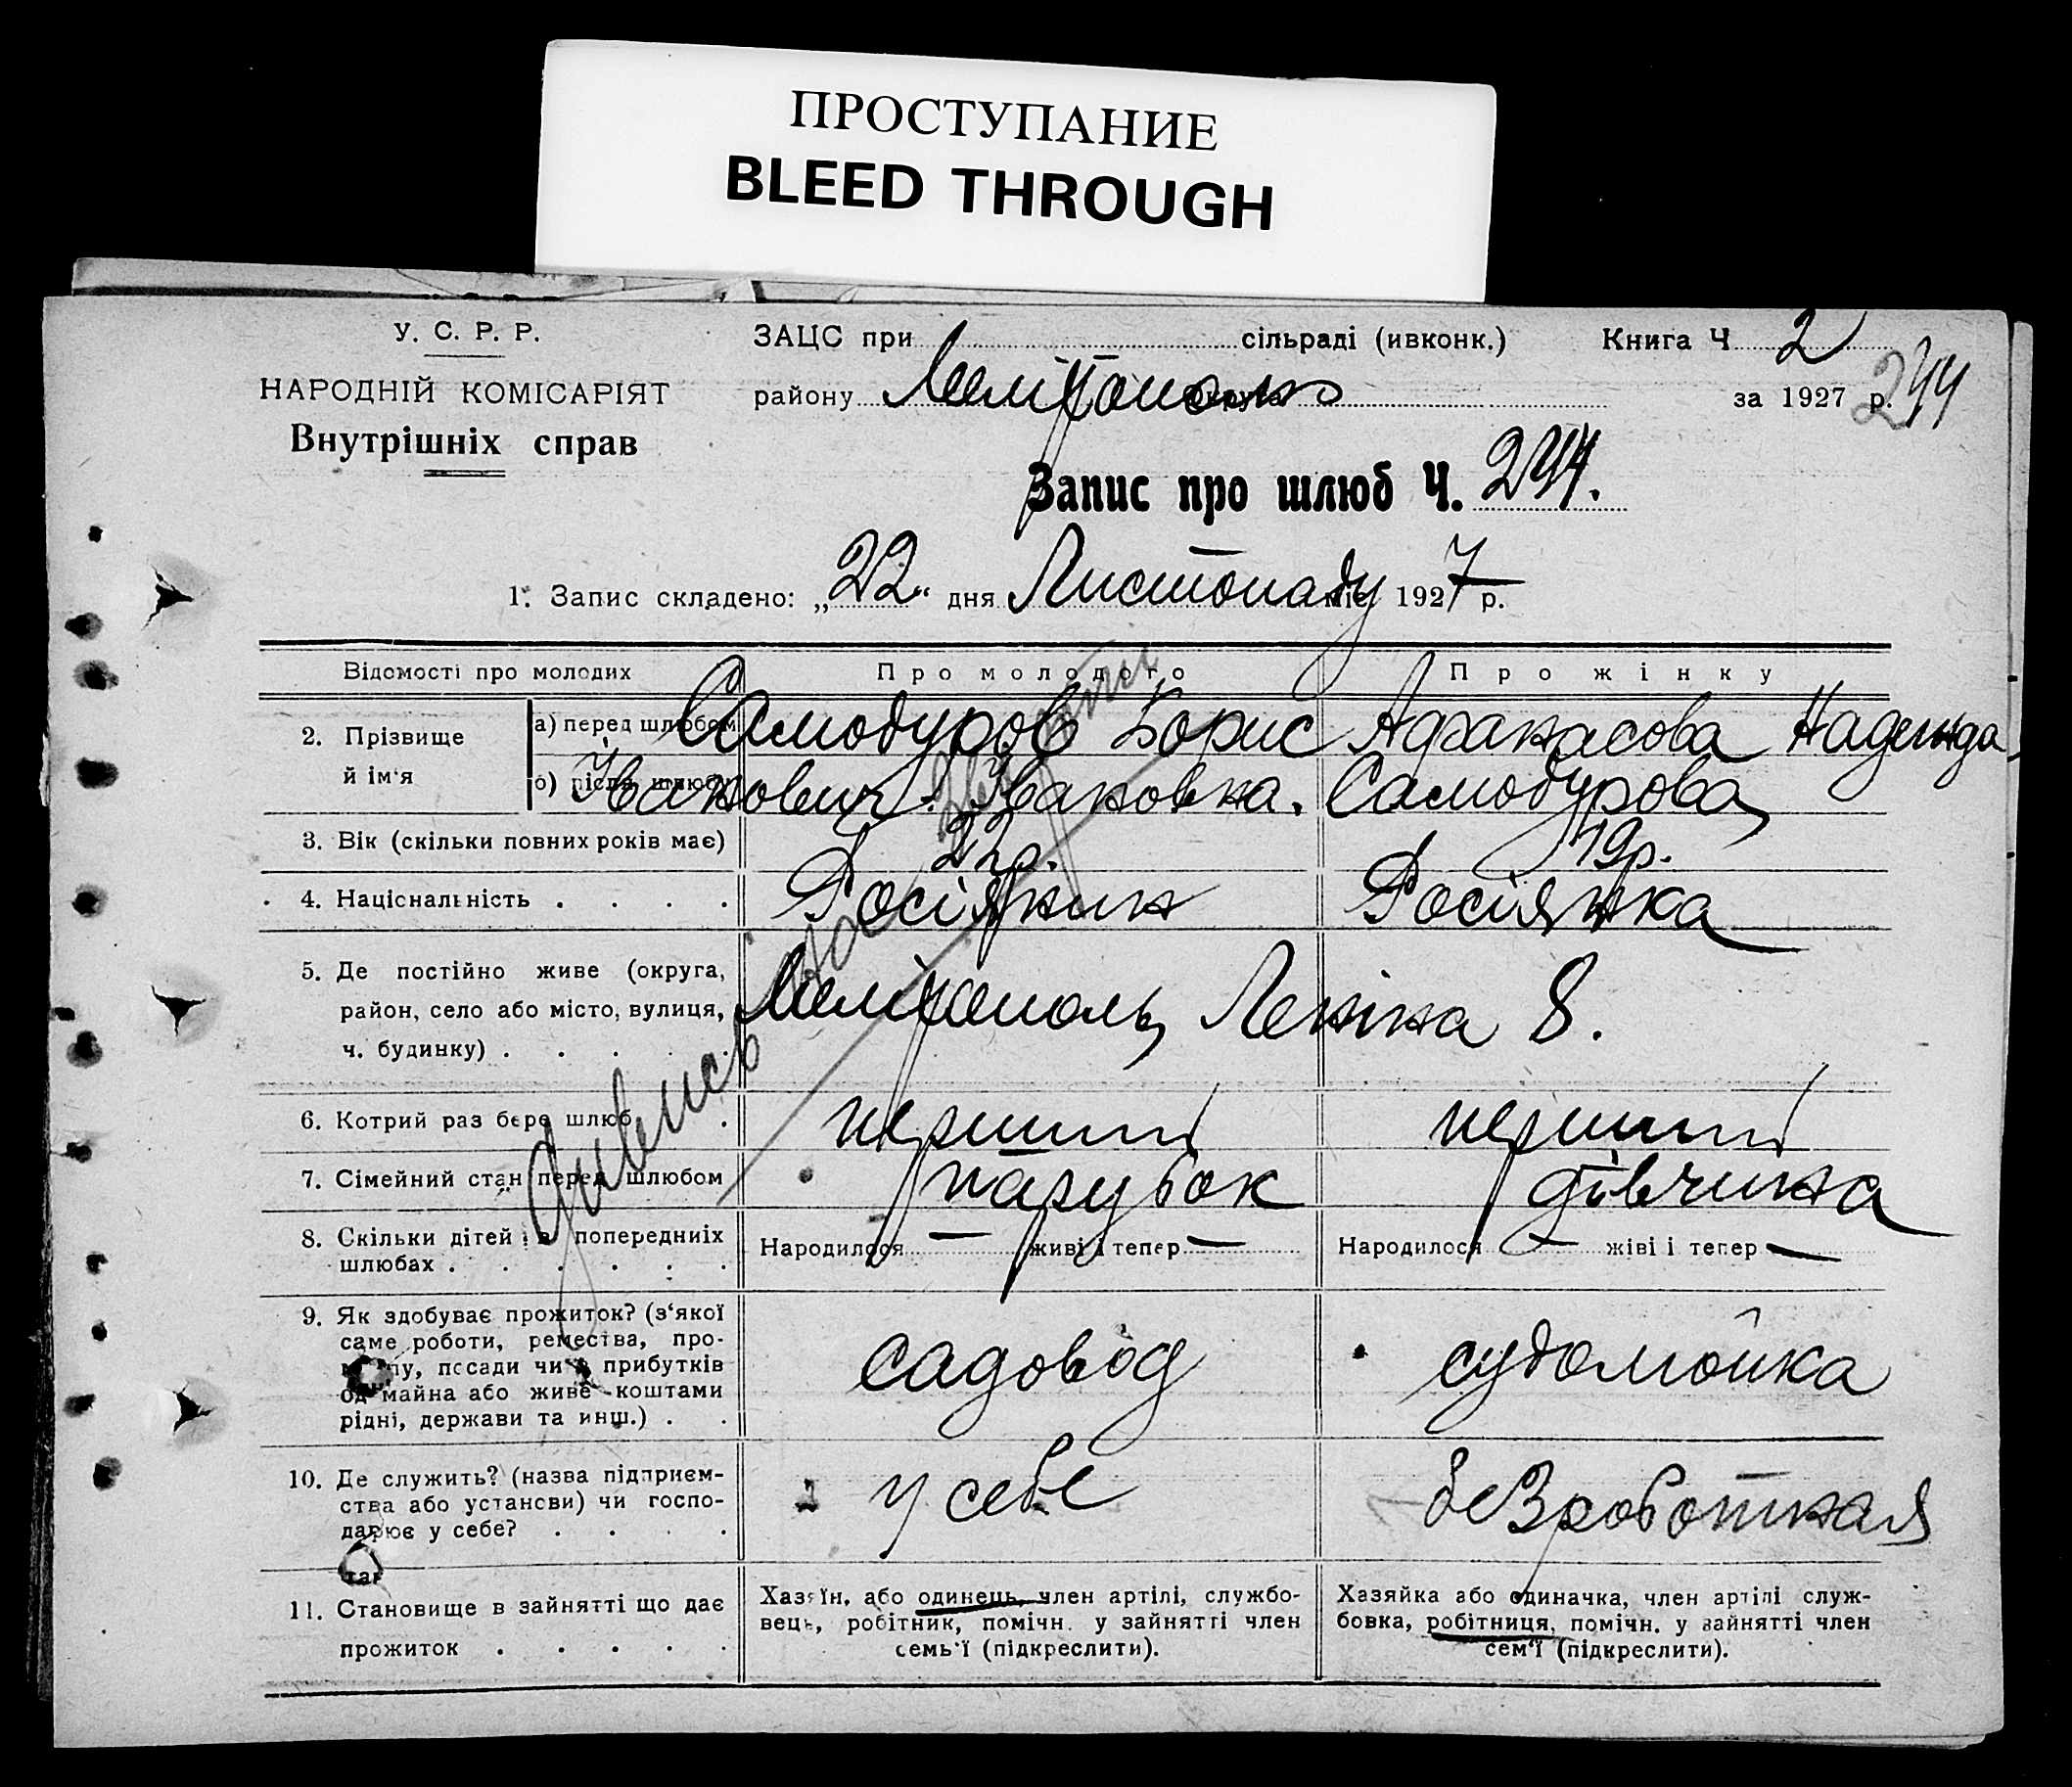 ПРОСТУПАНИЕ
BLEED THROUGH
У. С. Р. Р.
НАРОДНІЙ КОМІСАРІЯТ
Внутрішніх справ
ЗАЦС при сільраді (ивконк.)
району Мелітополь
Книга Ч 2
за 1927 р. 244
Запис про шлюб Ч. 244.
1. Запис складено: „22“ дня Листопаду 1927 р.
Відомості про молодих
Про молодого
Про жінку
2. Прізвище й ім'я
а) перед шлюбом
Самодуров Борис
Афанасова Надежда
б) після шлюбу
Іванович. Івановна.
Самодурова
3. Вік (скільки повних років має)
22р.
19р.
4. Національність . . . .
Росіянин
Росіянка
5. Де постійно живе (округа,
район, село або місто, вулиця,
ч. будинку) . . . .
Мелітополь, Леніна 8.
6. Котрий раз бере шлюб .
перший
перший
7. Сімейний стан перед шлюбом
парубок
дівчина
8. Скільки дітей з попередниіх
шлюбах . . . . . .
Народилося — живі і тепер —
Народилося — жіві і тепер —
9. Як здобуває прожиток? (з'якої
саме роботи, ремества, про-
мислу, посади чи з прибутків
од майна або живе коштами
рідні, держави та инш.) . .
садовод
судомойка
10. Де служить? (назва підприєм-
ства або установи) чи госпо-
дарює у себе? . . . .
у себе
безроботная
11. Становище в зайнятті що дає
прожиток . . . . .
Хазяїн, або одинець, член артілі, службо-
вець, робітник, помічн. у зайнятті член
семь'ї (підкреслити).
Хазяйка або одиначка, член артілі служ-
бовка, робітниця, помічн. у зайнятті член
сем'ї (підкреслити).